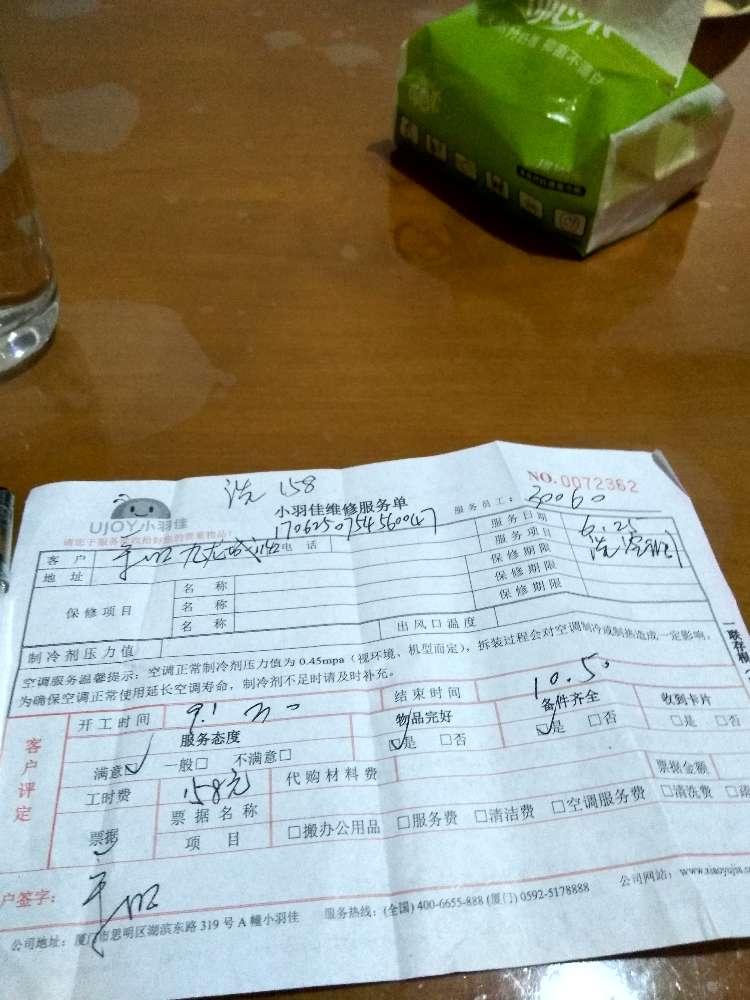 洗 158
NO.0072362
UJOY小羽佳
小羽佳维修服务单
服务员工： 30060
1706250754560047
服务日期 6.25
客户
电话
服务项目 洗空调
地址
保修期限
保修项目 名称
保修期限
名称
保修期限
名称
出风口温度
制冷剂压力值
空调服务温馨提示：空调正常制冷剂压力值为 0.45mpa（视环境、机型而定），拆装过程会对空调制冷或制热造成一定影响，
为确保空调正常使用延长空调寿命，制冷剂不足时请及时补充。
客户评定
开工时间
结束时间 10.50
服务态度 物品完好 备件齐全 收到卡片
满意☑ 一般□ 不满意□ ☑是 □否 ☑是 □否 □是 □否
工时费 158元 代购材料费
票据 票据名称 票据金额
项目 □搬办公用品 □服务费 □清洁费 □空调服务费 □清洗费
户签字：
公司地址：厦门市思明区湖滨东路 319 号 A 幢小羽佳 服务热线：(全国) 400-6655-888 (厦门) 0592-5178888 公司网站：www.xiaoyujia.c
一联存根